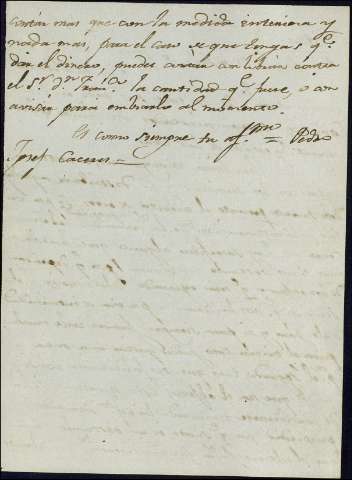 cortar mas que con la medida interior y
nada mas, para el caso de que tengas qe.
dar el dinero, puedes contra
el Sr. Dn. la cantidad qe. fuere, o con
aviso para embiarlo al momento.
Es como siempre tu af.mo = Pedro
Josef Caceres =